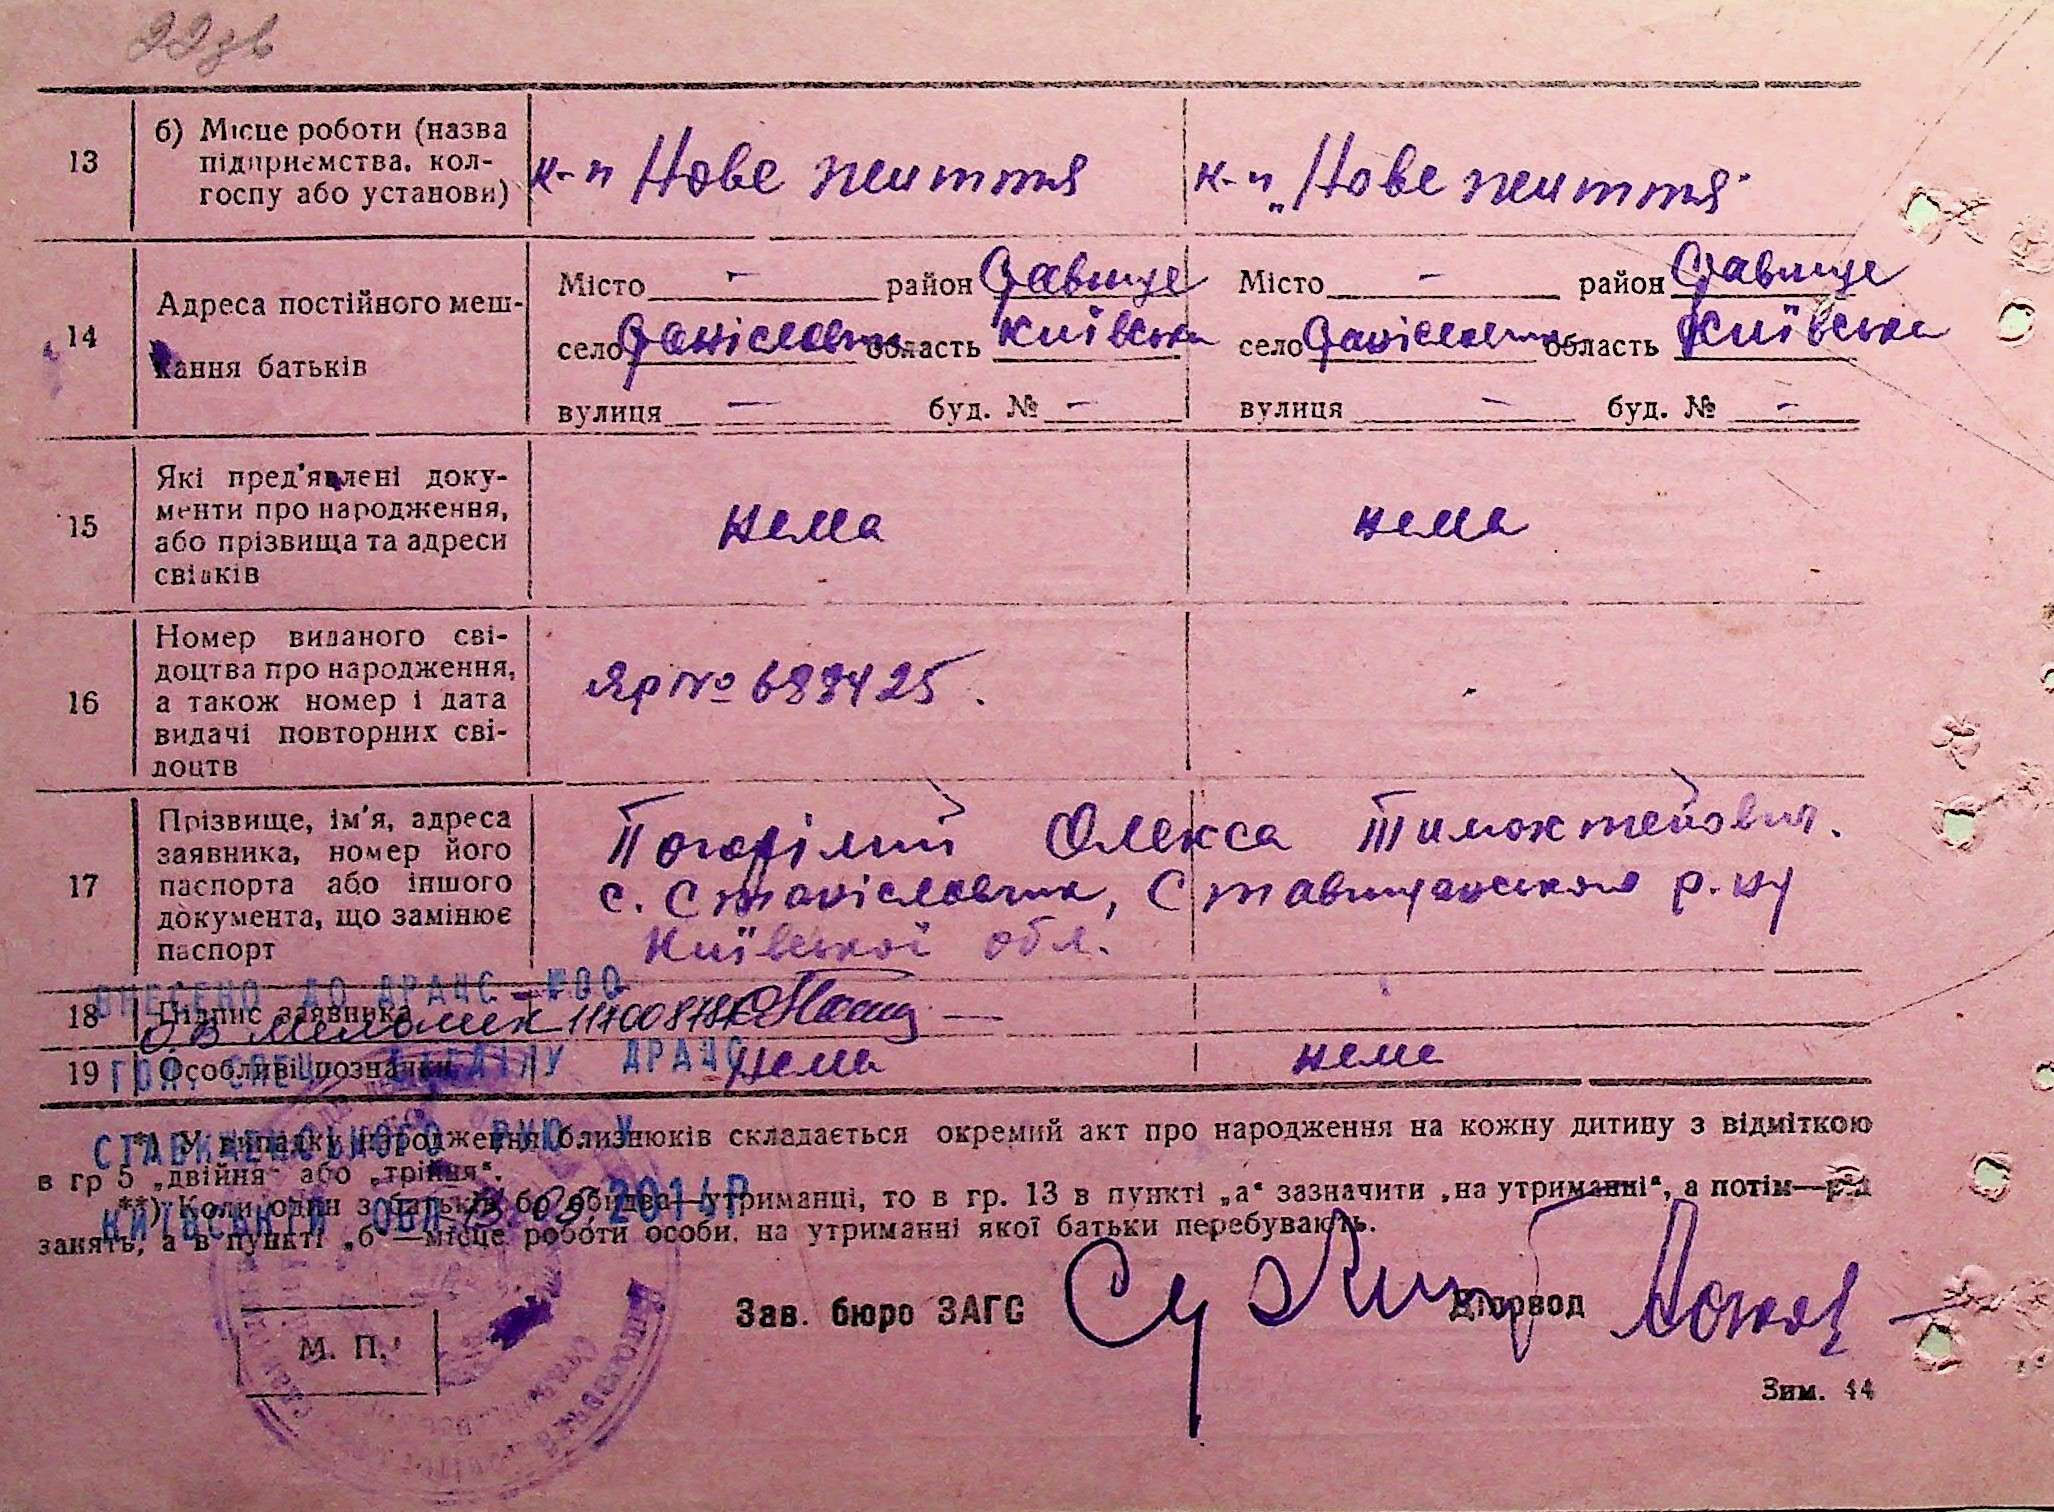 22зв
13 б) Місце роботи (назва
підприємства, кол-
госпу або установи)
к-п Нове життя к-п „Нове життя"
14 Адреса постійного меш-
кання батьків
Місто — район Ставище Місто — район Ставище
село Станіславчик область Київська село Станіславчик область Київська
вулиця — буд. № — вулиця — буд. № —
15 Які пред'явлені доку-
менти про народження,
або прізвища та адреси
свідків
нема нема
16 Номер виданого сві-
доцтва про народження,
а також номер і дата
видачі повторних сві-
доцтв
Яр № 689425.
17 Прізвище, ім'я, адреса
заявника, номер його
паспорта або іншого
документа, що замінює
паспорт
Погорілий Олекса Тимофтейович.
с. Станіславчик, Ставищанського р. ну
Київської обл.
ВНЕСЕНО ДО ДРАЦС - №00
18 Підпис заявника
19 Особливі позначки нема нема
*) У випадку народження близнюків складається окремий акт про народження на кожну дитину з відміткою
в гр 5 „двійня" або „трійня".
**) Коли один з батьків бо обидва—утриманці, то в гр. 13 в пункті „а" зазначити „на утриманні", а потім—рід
занять, а в пункті „б"—місце роботи особи, на утриманні якої батьки перебувають.
2014Р
Зав. бюро ЗАГС Діловод
М. П.
Зим. 44